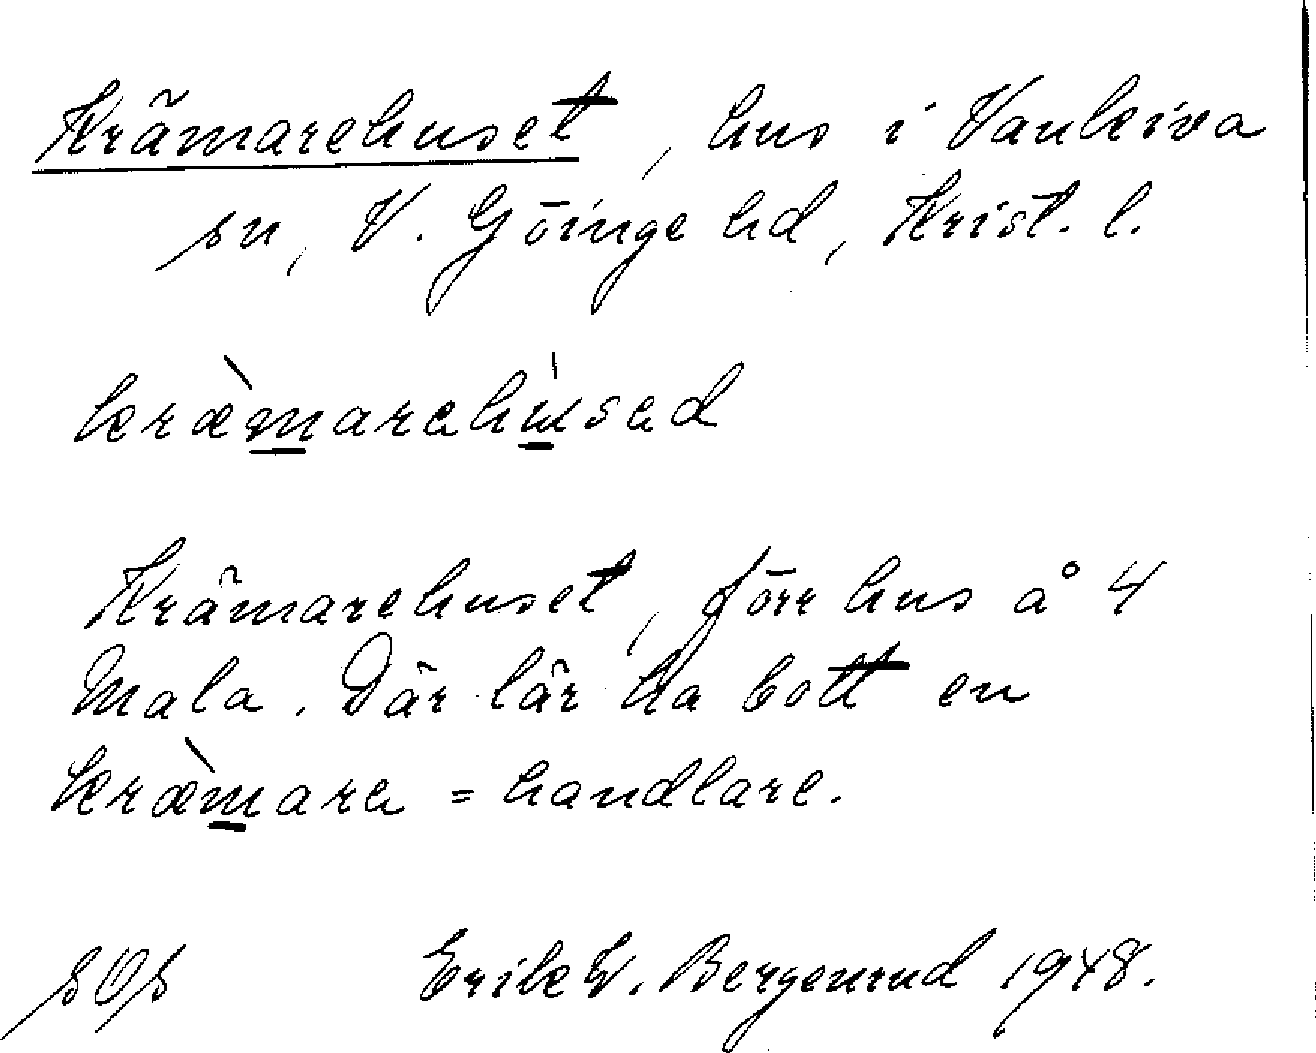 Krämarehuset, hus i Vankiva
sn, V. Göinge hd, Krist. l.
kræ̀marehu̇sed
Krämarehuset, förr hus å 4
Mala. Där lär ha bott en
kræ̀mare = handlare.
Erik W. Bergenrud 1948.